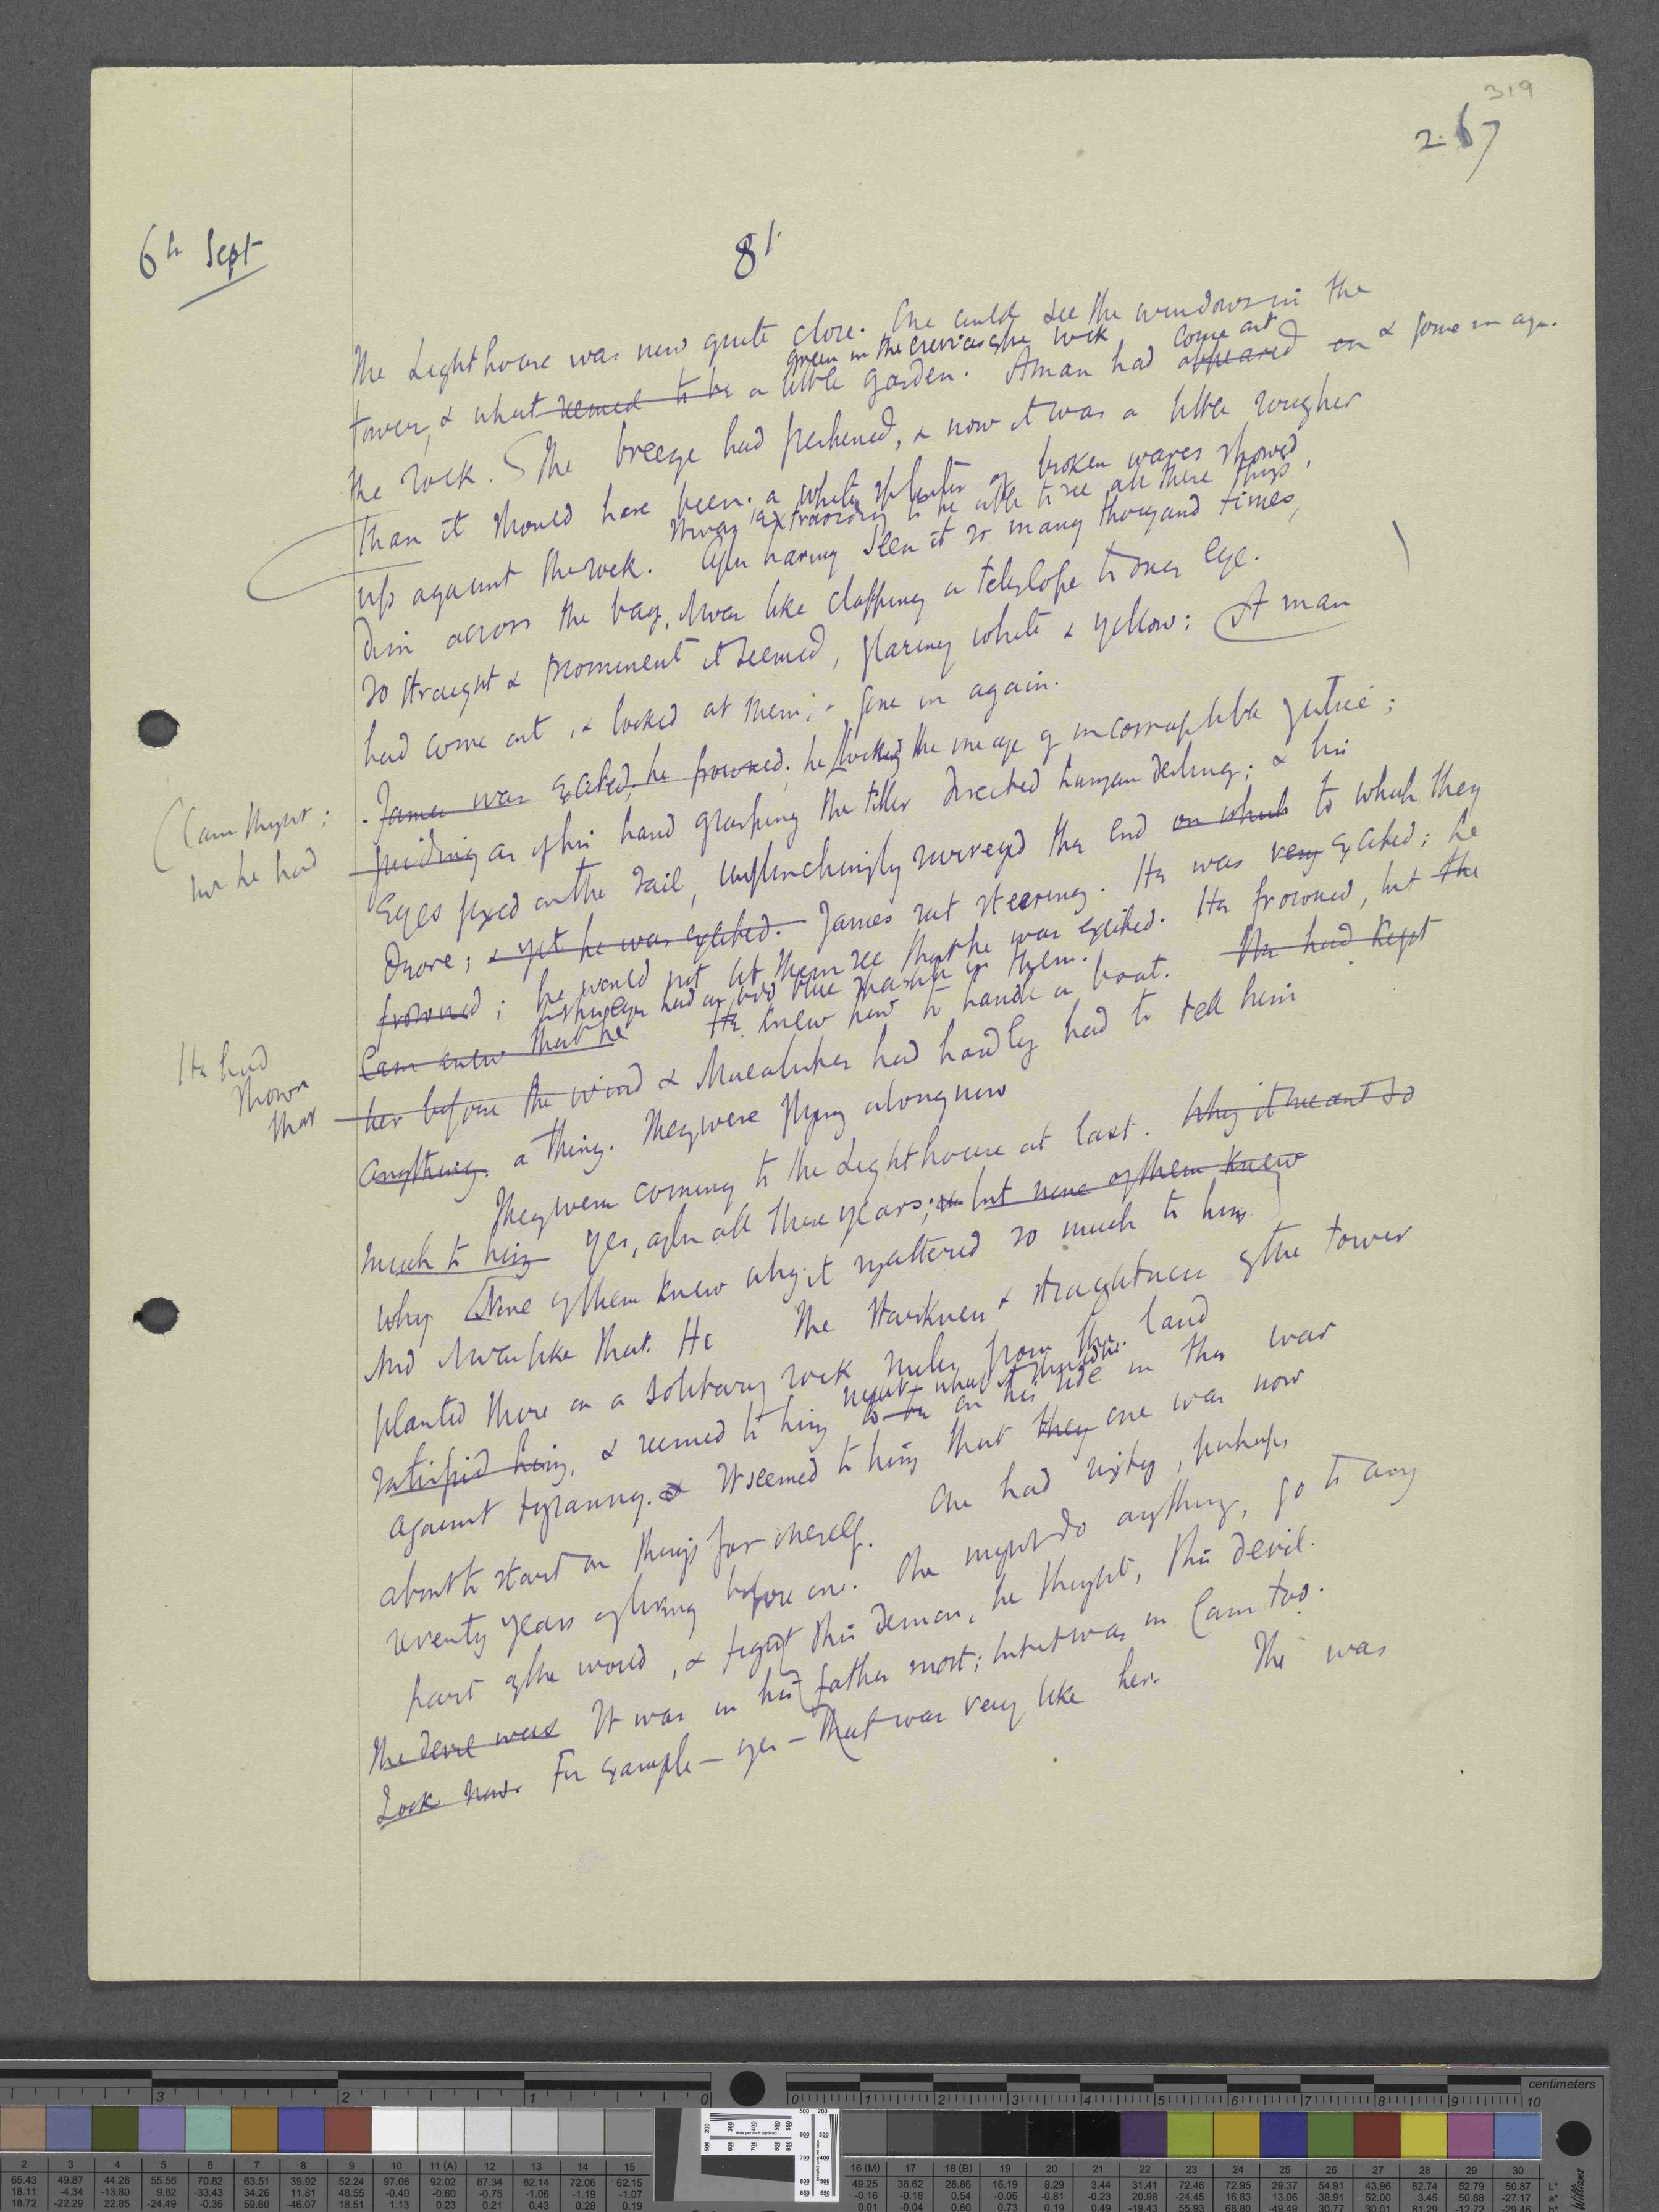 319
267
6th Sept
81.
The Lighthouse was now quite close. One could see the windows in the
green in the crevices of the rock come out
tower, & what seemed to be a little garden. A man had appeared on & gone in again.
the rock. The breeze had freshened, & now it was a little rougher
than it should have been. a white splinter of broken waves showed
It was extraordinary to be able to see all these things,
up against the rock. After having seen it so many thousand times,
dim across the bay, it was like clapping a telescope to ones eye.
so straight & prominent it seemed, glaring white & yellow: A man
had come out, & looked at them; & gone in again.
James was excited; he frowned; he looked the image of incorruptible justice;
(Cam thought;
but he had
guiding as if his hand grasping the tiller directed human destiny; & his
eyes fixed on the sail, unflinchingly surveyed the end on which to which they
drove; & yet he was excited. James sat steering. He was very excited; he
frowned; he would not let them see that he was excited. He frowned, but the
but his eyes had an odd blue in them.
Cam knew that he He knew how to handle a boat. He had kept
He had
shown
that
her before the wind & Macalister had hardly had to tell him
anything. a thing. They were flying along now
They were coming to the Lighthouse at last. Why it meant so
much to him Yes, after all these years; but none of them knew
why None of them knew why it mattered so much to him
And it was like that. He The starkness & straightness of the tower
planted there on a solitary rock miles from the land
meant what it should be.
satisfied him, & seemed to him to be on his side in the war
against tyranny. & It seemed to him that they one was now
about to start on things for oneself. One had sixty, perhaps
seventy years of living before one. One might do anything, go to any
part of the world, & fight this demon, he thought, this devil.
The devil was It was in his father most; but it was in Cam too.
Look now. For example — yes — that was very like her. She was